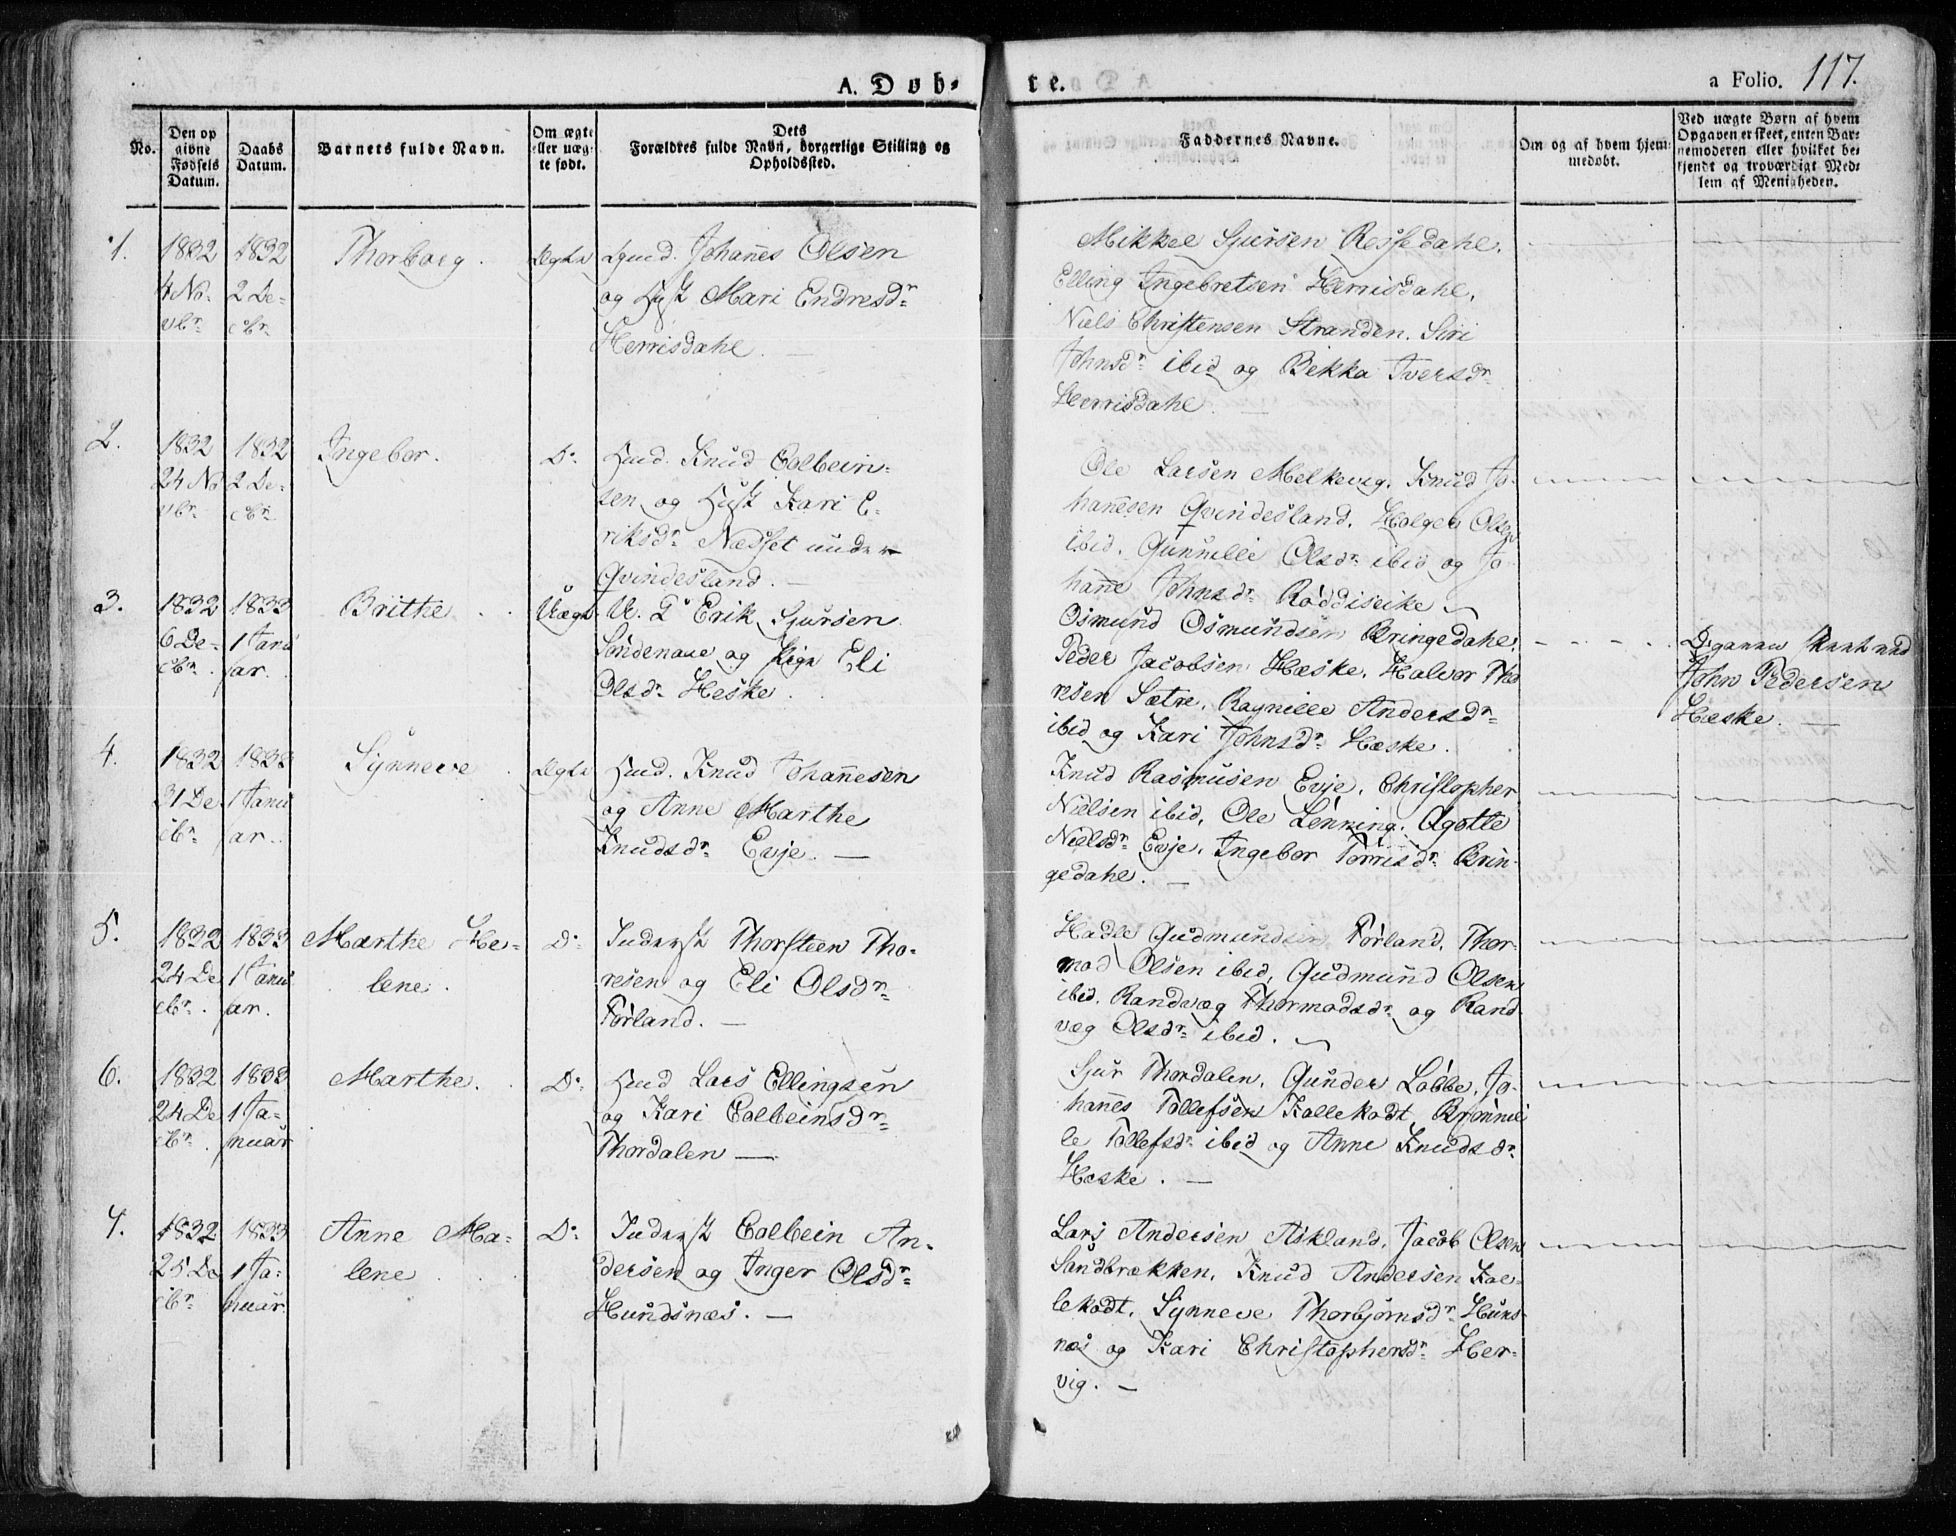 A. Døb-
te.
a Folio. 117.
No.
Den op
givne
Fødsels
Datum.
Daabs
Datum.
Barnets fulde Navn.
Om ægte
eller uæg-
te født.
Dets
Forældres fulde Navn, borgerlige Stilling og
Opholdssted.
Faddernes Navne.
Om og af hvem hjem-
medøbt.
Ved uægte Børn af hvem
Opgaven er skeet, enten Bar-
nemoderen eller hvilket be-
kjendt og troværdigt Med-
lem af Menigheden.
1.
1832
4 No-
vbr.
1832
2 De-
cbr.
Thorborg.
Ægte
Johañes Olsen
og Hust Mari Endresdr
Herrisdahl. —
Mikkel Sjursen Ressedahl.
Elling Ingebretsen Herrisdahl.
Niels Christensen Stranden. Siri
Johnsdr ibid og Bekka Iversdr
Herrisdahl. —
2.
1832
24 No
vbr.
1832
2 De-
cbr.
Ingebor.
Do
Huusmd. Knud Colbein-
sen og Hust Kari E-
riksdr Nædset under
Qvindesland. —
Ole Larsen Melkevig. Knud Jo-
hañesen Qvindesland. Holger Olsen
ibid. Gunnille Olsdr ibid og Jo-
hañe Johnsdr Røddiseike
3.
1832
6 De-
cbr.
1833
1 Janu
ar.
Brithe.
Uægte
Erik Sjursen
Søndenaae og Pige Eli
Olsdr Heske.
Osmund Osmundsen Bringedahl.
Peder Jacobsen Hæske. Halvor Tho
resen Sætre. Ragnille Andersdr
ibid og Kari Johnsdr Hæske.
John Pedersen
Hæske. —
4.
1832
31 De
cbr.
1833
1 Janu
ar.
Synneve
Ægte
Knud Johañesen
og Anne Marthe
Knudsdr Evje. —
Knud Rasmusen Evje. Christopher
Nielsen ibid. Ole Lønning. Agotte
Nielsdr Evje. Ingebor Torrisdr Brin-
gedahl. —
5.
1832
24 De
cbr.
1833
1 Janu
ar.
Marthe He-
lene.
Do
Inderst Thorsteen Tho-
resen og Eli Olsdr
Førland. —
Hadle Gudmundsen Førland. Thor-
mod Olsen ibid. Gudmund Olsen
ibid. Randvæg Thormodsdr og Rand
væg Olsdr ibid.
6.
1832
24 De
cbr.
1833
1 Ja-
nuar
Marthe.
Do
Lars Ellingsen
og Kari Colbeinsdr
Thordalen —
Sjur Thordalen. Gunder Løbbe. Jo-
hañes Tollefsen Kallekodt. Brønnil
le Tollefsdr ibid og Anne Knudsdr
Hæske. —
7.
1832
25 De
cbr.
1833
1 Ja-
nuar.
Anne Ma-
lene
Do
Inderst Colbein An-
dersen og Inger Olsdr
Hundsnæs. —
Lars Andersen Askland. Jacob Olsen
Sandbrækken. Knud Andersen Kal-
lekodt. Synneve Thorbjørnsdr Huns-
næs og Kari Christophersdr Her-
vig. —